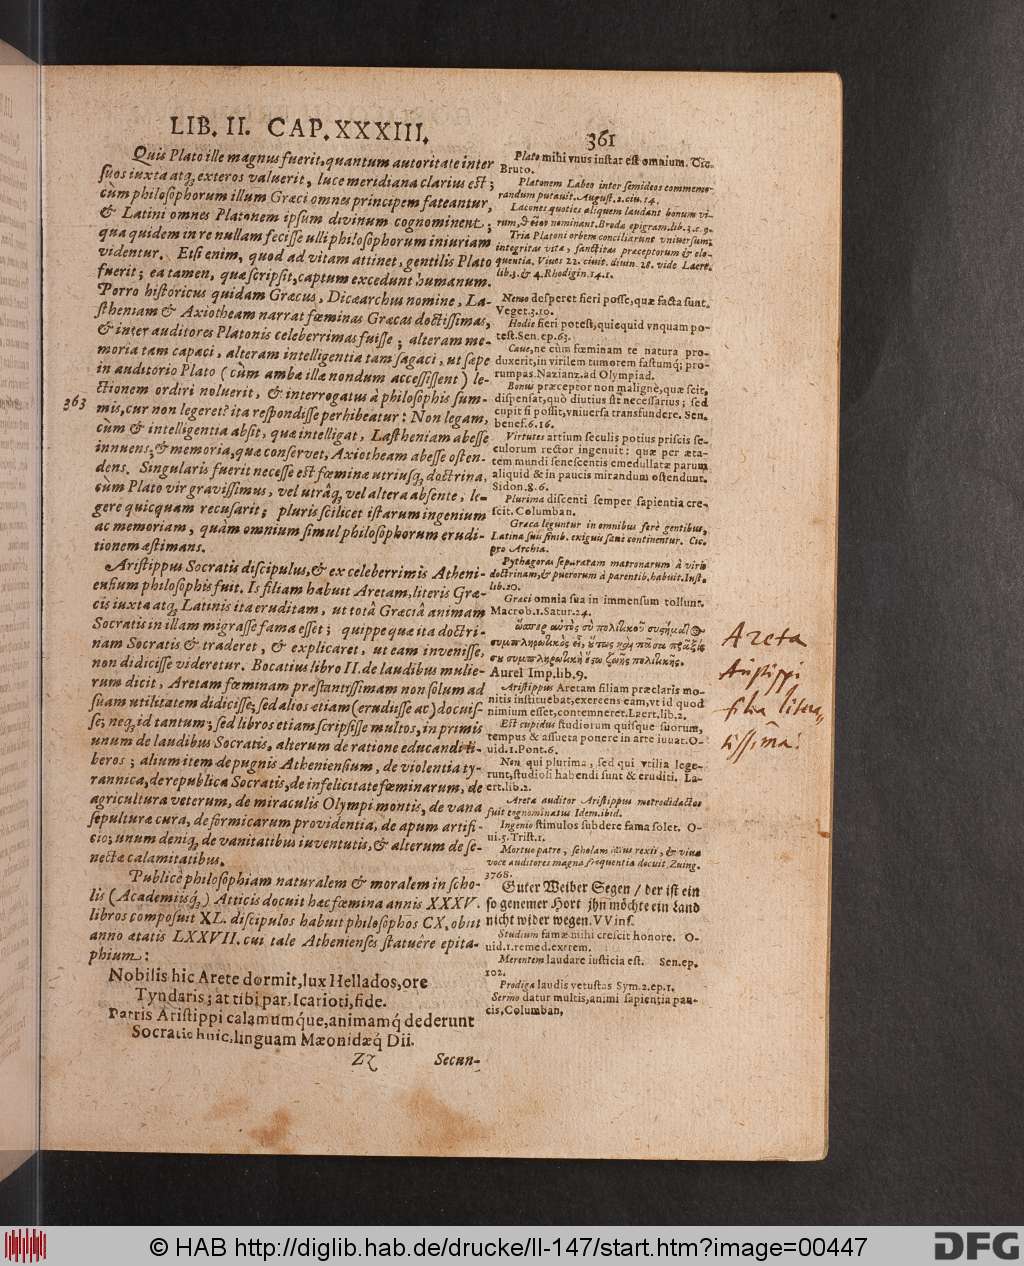 LIB. II. CAP. XXXIII.
361
Quis Plato ille magnus fuerit, quantum autoritate inter
suos iuxta atq; exteros valuerit, luce meridiana clarius est;
cùm philosophorum illum Græci omnes principem fateantur,
& Latini omnes Platonem ipsum divinum cognominent;
qua quidem in re nullam fecisse ulli philosophorum iniuriam
videntur. Etsi enim, quod ad vitam attinet, gentilis Plato
fuerit; ea tamen, quæ scripsit, captum excedunt humanum.
Porro historicus quidam Græcus, Dicæarchus nomine, La-
stheniam & Axiotheam narrat fœminas Græcas doctissimas,
& inter auditores Platonis celeberrimas fuisse; alteram me-
moria tam capaci, alteram intelligentia tam sagaci, ut sæpe
in auditorio Plato (cùm ambæ illæ nondum accessissent) le-
ctionem ordiri noluerit, & interrogatus à philosophis sum-
363
mis, cur non legeret? ita respondisse perhibeatur: Non legam,
cùm & intelligentia absit, quæ intelligat, Lastheniam abesse
innuens; & memoria, quæ conservet, Axiotheam abesse osten-
dens. Singularis fuerit necesse est fœminæ utriusq; doctrina,
cùm Plato vir gravissimus, vel utrâq; vel altera absente, le-
gere quicquam recusarit; pluris scilicet istarum ingenium
ac memoriam, quàm omnium simul philosophorum erudi-
tionem æstimans.
Aristippus Socratis discipulus, & ex celeberrimis Atheni-
ensium philosophis fuit. Is filiam habuit Aretam, literis Græ-
cis iuxta atq; Latinis ita eruditam, ut totâ Græciâ animam
Socratis in illam migrasse fama esset; quippe quæ ita doctri-
nam Socratis & traderet, & explicaret, ut eam invenisse,
non didicisse videretur. Bocatius libro II. de laudibus mulie-
rum dicit, Aretam fœminam præstantissimam non sölum ad
suam utilitatem didicisse; sed alios etiam (erudisse ac) docuis-
se; neq; id tantum; sed libros etiam scripsisse multos, in primis
unum de laudibus Socratis, alterum de ratione educandi li-
beros; alium item de pugnis Atheniensium, de violentia ty-
rannica, de republica Socratis, de infelicitate fœminarum, de
agricultura veterum, de miraculis Olympi montis, de vana
sepulturæ cura, de formicarum providentia, de apum artifi-
cio; unum deniq; de vanitatibus iuventutis, & alterum de se-
nectæ calamitatibus.
Publicè philosophiam naturalem & moralem in scho-
lis (Academiisq;) Atticis docuit hæc fœmina annis XXXV.
libros composuit XL. discipulos habuit philosophos CX. obiit
anno ætatis LXXVII. cui tale Athenienses statuêre epita-
phium:
Nobilis hic Arete dormit, lux Hellados, ore
Tyndaris; at tibi par, Icarioti, fide.
Patris Aristippi calamumque, animamq́; dederunt
Socratis huic, linguam Mæonidæq́; Dii.
Zz
Secun-
Plato mihi vnus instar est omnium. Cic.
Bruto.
Platonem Labeo inter semideos commemo-
randum putauit. August. 2. ciu. 14.
Lacones quoties aliquem laudant bonum vi-
rum, nominant. Broda epigram. lib. 3. c. 9.
Tria Platoni orbem conciliarunt vniuersum;
integritas vitæ, sanctitas præceptorum & elo-
quentia. Viues 22. ciuit. diuin. 28. vide Laert.
lib. 3. & 4. Rhodigin. 14. 1.
Nemo desperet fieri posse, quæ facta sunt.
Veget. 3. 10.
Hodie fieri potest, quicquid vnquam po-
test. Sen. ep. 63.
Caue, ne cùm fœminam te natura pro-
duxerit, in virilem tumorem fastumq́; pro-
rumpas. Nazianz. ad Olympiad.
Bonus præceptor non malignè, quæ scit,
dispensat, quò diutius sit necessarius; sed
cupit si possit, vniuersa transfundere. Sen.
benef. 6. 16.
Virtutes artium seculis potius priscis se-
culorum rector ingenuit: quæ per æta-
tem mundi senescentis emedullatæ parum
aliquid & in paucis mirandum ostendunt.
Sidon. 8. 6.
Plurima discenti semper sapientia cre-
scit. Columban.
Græca leguntur in omnibus ferè gentibus,
Latina suis finib. exiguis sanè continentur. Cic.
pro Archia.
Pythagoras separatam matronarum à viris
doctrinam, & puerorum à parentib. habuit. Iust.
lib. 20.
Græci omnia sua in immensum tollunt.
Macrob. 1. Satur. 24.
ὥσπερ αὐτὸς σὺ πολιτικοῦ συστήματος
συμπληρωτικὸς εἶ, οὕτως καὶ πᾶσα πρᾶξίς
σου συμπληρωτικὴ ἔστω ζωῆς πολιτικῆς.
Aurel Imp. lib. 9.
Aristippus Aretam filiam præclaris mo-
nitis instituebat, exercens eam, vt id quod
nimium esset, contemneret. Laert. lib. 2.
Est cupidus studiorum quisque suorum,
tempus & assueta ponere in arte iuuat. O-
uid. 1. Pont. 6.
Non qui plurima, sed qui vtilia lege-
runt, studiosi habendi sunt & eruditi. La-
ert. lib. 2.
Areta auditor Aristippus metrodidactos
fuit cognominatus Idem. ibid.
Ingenio stimulos subdere fama solet. O-
ui. 5. Trist. 1.
Mortuo patre, scholam illius rexit, & viua
voce auditores magna frequentia docuit. Zuing.
3768.
Guter Weiber Segen / der ist ein
so genemer Hort jhn möchte ein Land
nicht wider wegen. VVinf.
Studium famæ mihi crescit honore. O-
uid. 1. remed. extrem.
Merentem laudare iusticia est. Sen. ep.
102.
Prodiga laudis vetustas Sym. 2. ep. 1.
Sermo datur multis, animi sapientia pau-
cis, Columban,
Areta
Aristippi
filia litera-
tissima.
© HAB http://diglib.hab.de/drucke/ll-147/start.htm?image=00447
DFG